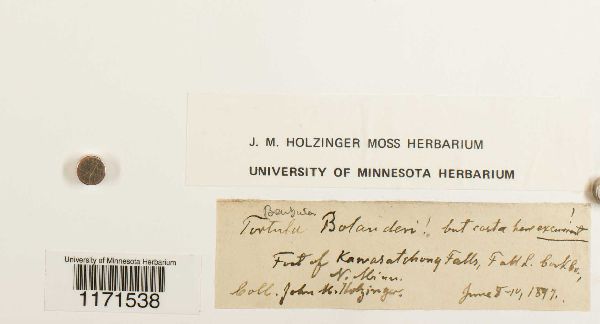 J. M. HOLZINGER MOSS HERBARIUM
UNIVERSITY OF MINNESOTA HERBARIUM
Barbula
Tortula Bolanderi! but costa here excurrent!
Foot of Kawasatchong Falls, Fall L.
N. Minn.
Coll. John M. Holzinger. June 8-14, 1897.
University of Minnesota Herbarium
1171538